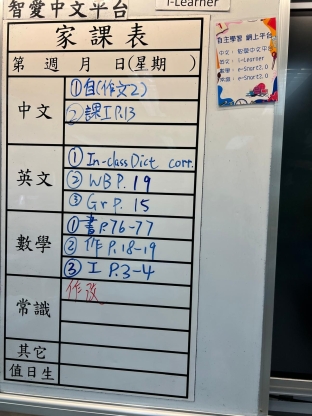 智愛中文平台
i-Learner
家課表
第 週 月 日(星期 )
中文
①自(作文2)
②課工P.13
英文
① In-class Dict corr.
② WB P. 19
③ Gr P. 15
數學
①書P.76-77
② 作P.18-19
③ 工 P.3-4
常識
作改
其它
值日生
自主學習 網上平台
中文： 智愛中文平台
英文： i-Learner
數學： e-Smart2.0
常識： e-Smart2.0